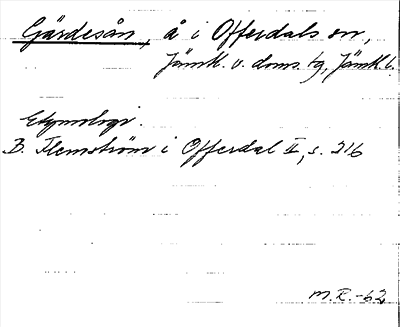 Gärdesån, å i Offerdals sn,
Jämtl. v. doms. tg, Jämtl. l.
Etymologi.
B. Flemström i Offerdal II, s. 216
M.E.-62